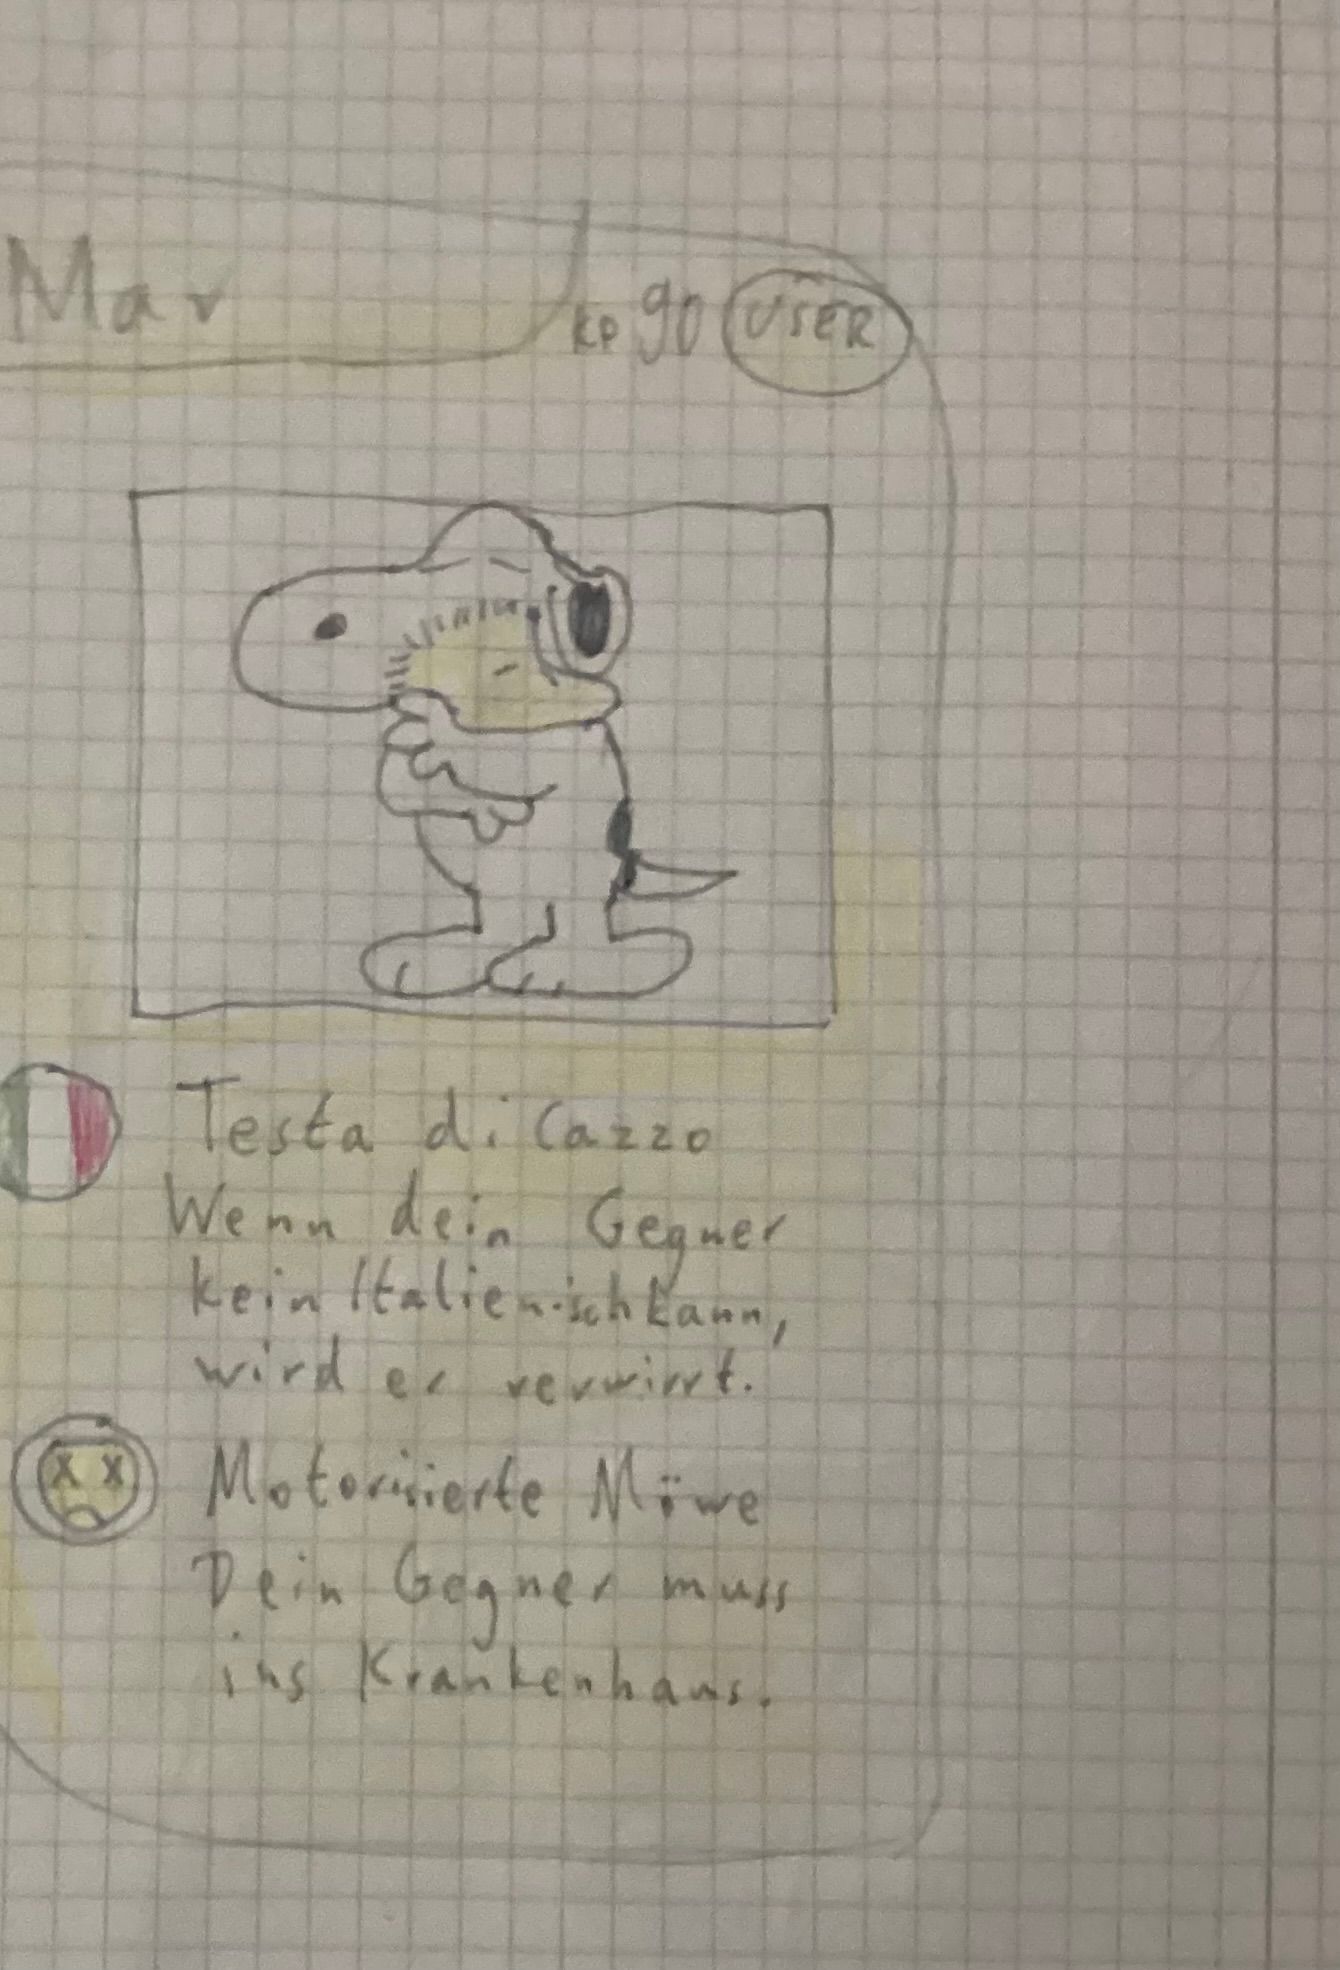 Mar
KP 90 USER
Testa di Cazzo
Wenn dein Gegner
kein Italienisch kann,
wird er verwirrt.
Motorisierte Möwe
Dein Gegner muss
ins Krankenhaus.